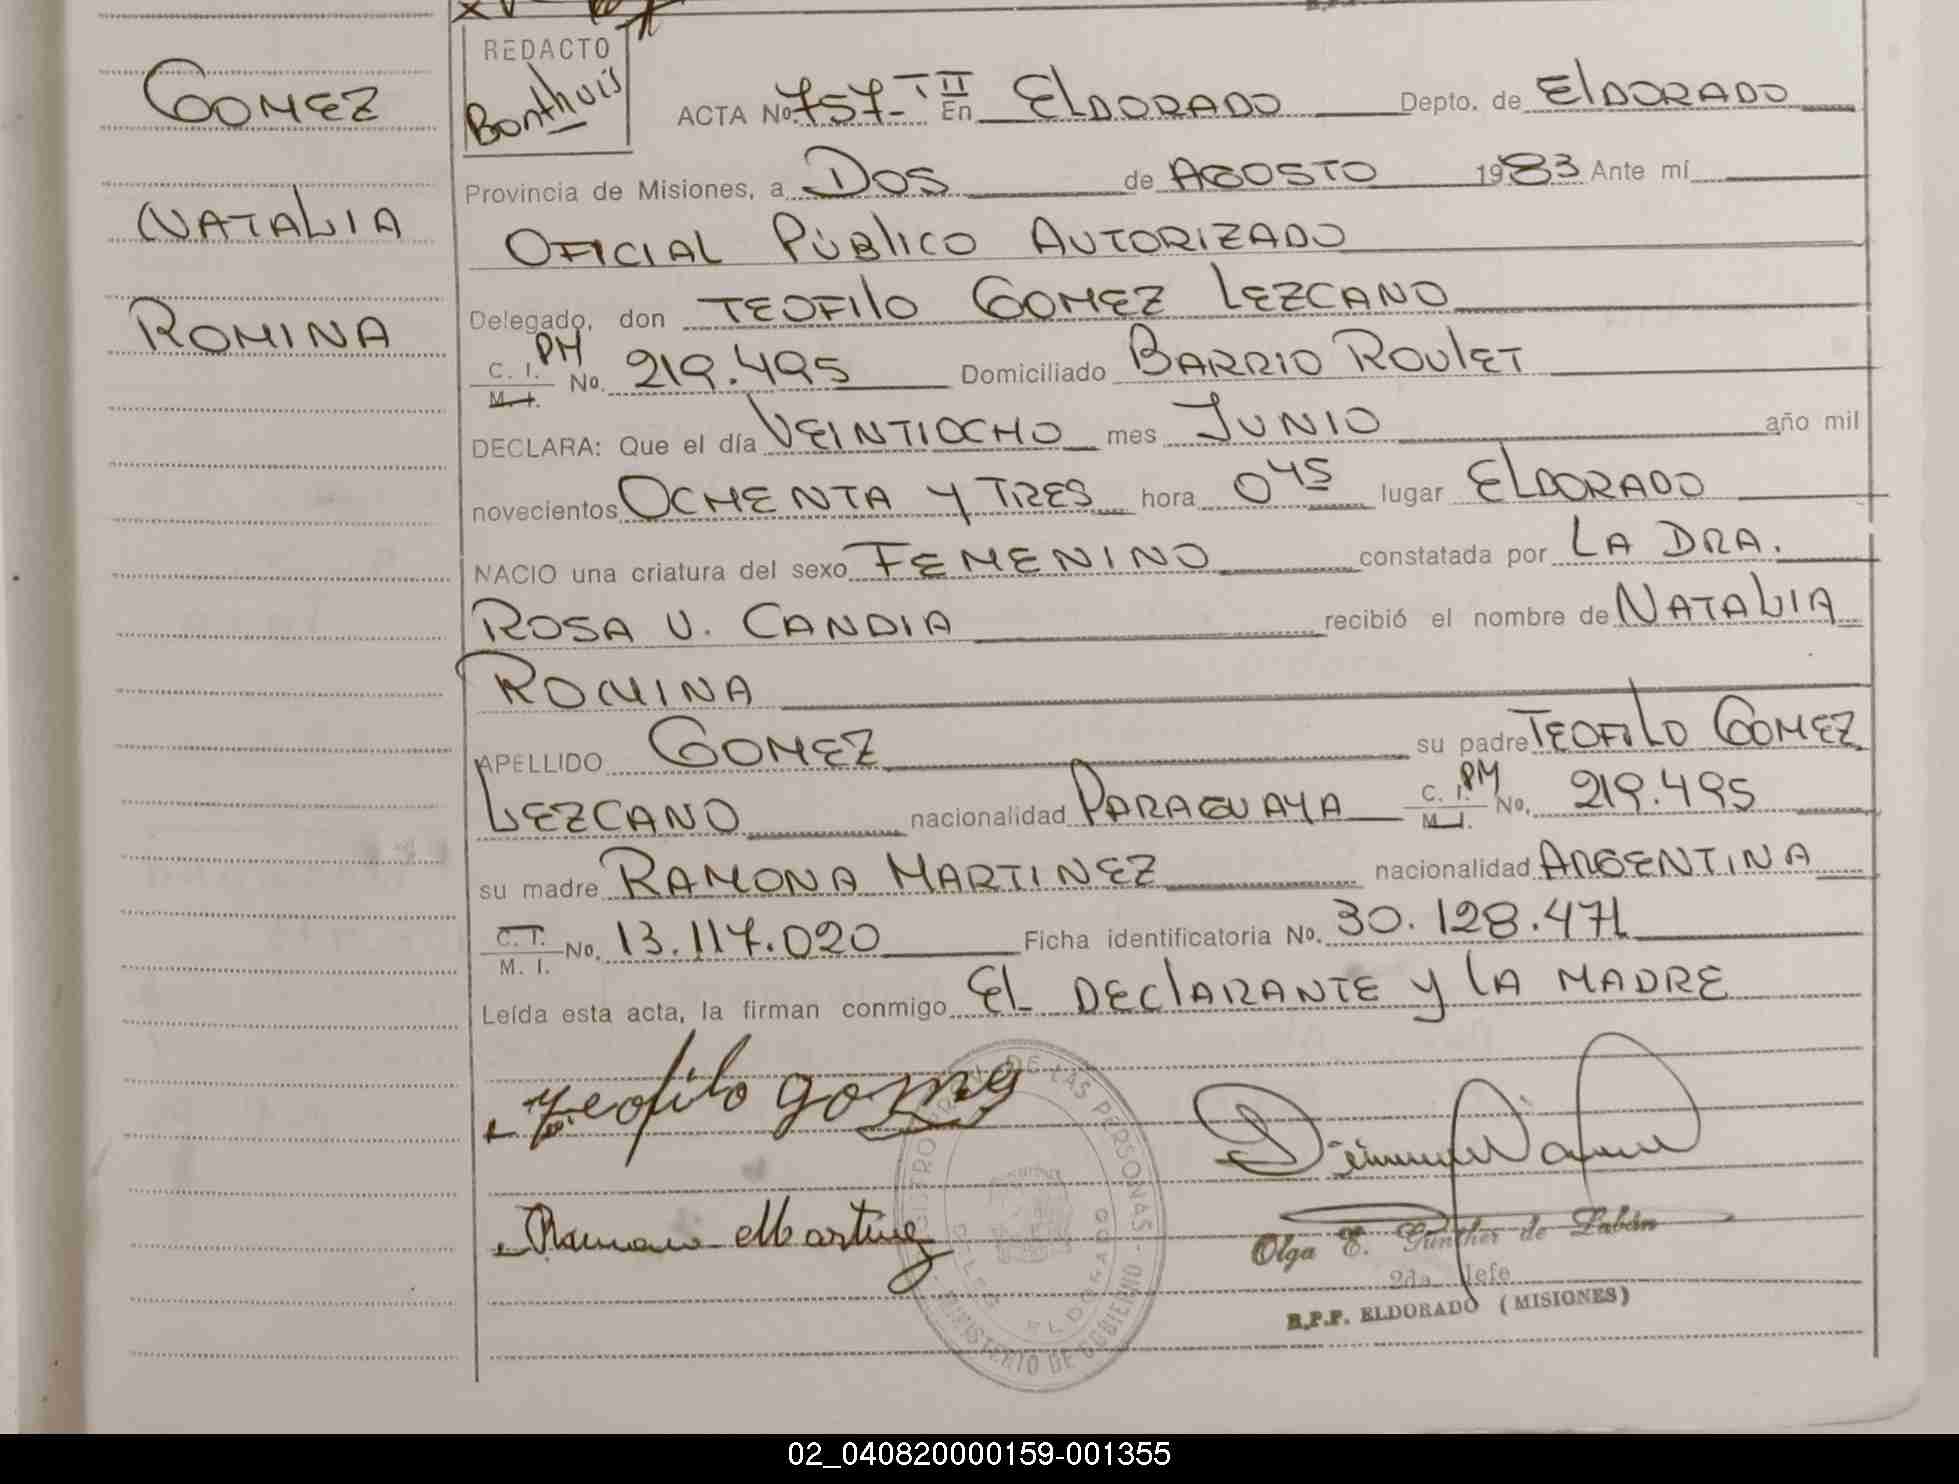 GOMEZ
NATALIA
ROMINA
REDACTO
Bonthuis
ACTA No. 757-T II En ELDORADO Depto. de ELDORADO
Provincia de Misiones, a DOS de AGOSTO 1983 Ante mí
OFICIAL PÚBLICO AUTORIZADO
Delegado, don TEOFILO GOMEZ LEZCANO
C. I. PM M. I. No. 219.495 Domiciliado BARRIO ROULET
DECLARA: Que el día VEINTIOCHO mes JUNIO año mil
novecientos OCHENTA Y TRES hora 0 45 lugar ELDORADO
NACIO una criatura del sexo FEMENINO constatada por LA DRA.
ROSA U. CANDIA recibió el nombre de NATALIA
ROMINA
APELLIDO GOMEZ su padre TEOFILO GOMEZ
LEZCANO nacionalidad PARAGUAYA C. I. PM M. I. No. 219.495
su madre RAMONA MARTINEZ nacionalidad ARGENTINA
C. I. M. I. No. 13.117.020 Ficha identificatoria No. 30.128.471
Leída esta acta, la firman conmigo EL DECLARANTE Y LA MADRE
Teofilo gomez
Ramona Martinez
DE LAS PERSONAS - MINISTERIO DE GOBIERNO
ELDORADO
Olga E. Günther de Labán
2da. Jefe
R.P.P. ELDORADO (MISIONES)
02_040820000159-001355